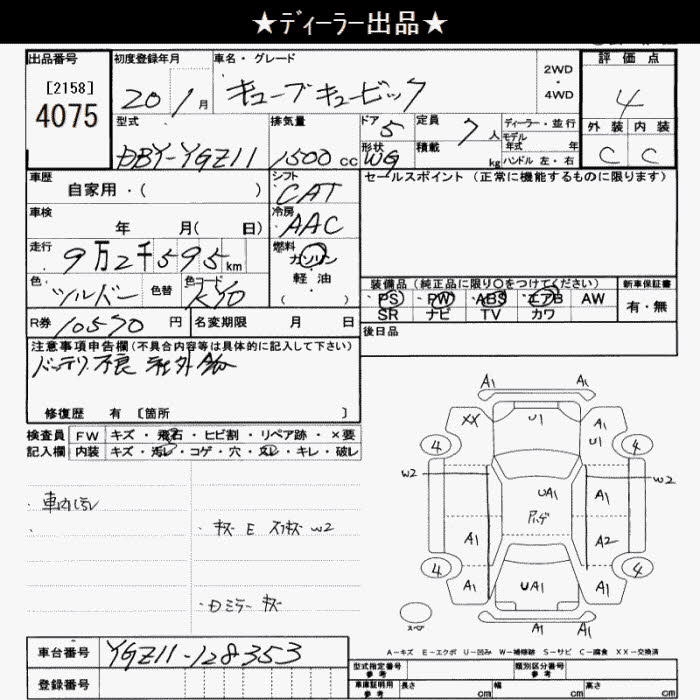 ★ﾃﾞｨｰﾗｰ出品★
出品番号
[2158]
4075
初度登録年月
20 1 月
車名・グレード
キューブキュービック
2WD
・
4WD
評価点
4
外装 内装
C C
型式
DBY-YGZ11
排気量
1500 cc
ドア 5
形状 WG
定員 7 人
積載 kg
ディーラー・並行
モデル
年式 年
ハンドル 左・右
車歴
自家用・( )
シフト
CAT
冷房
AAC
セールスポイント (正常に機能するものに限ります)
車検
年 月( 日)
走行
9万2千595 km
燃料
ガソリン
軽・油
( )
色
シルバー
色替
色コード
KY0
装備品 (純正品に限り〇をつけてください)
PS PW ABS エアB AW
SR ナビ TV カワ
新車保証書
有・無
R券 10570 円
名変期限 月 日
後日品
注意事項申告欄(不具合内容等は具体的に記入して下さい)
バッテリ不良
修復歴 有 [箇所 ]
検査員 FW キズ・飛石・ヒビ割・リペア跡・×要
記入欄 内装 キズ・汚レ・コゲ・穴・スレ・キレ・破レ
・車内汚レ
・キズ E スリキズ W2
・Dミラーキズ
A1 A1
XX U1 A1
U1
4 4
W2 W2
UA1 A1
A1 A2
4 4
A1 UA1 A1
A1 A1
スペア
A－キズ E－エクボ U－凹み W－補修跡 S－サビ C－腐食 XX－交換済
車台番号 YGZ11-128353
登録番号
型式指定番号
参考
類別区分番号
参考
車庫証明用
参考
長さ cm 幅 cm 高さ cm